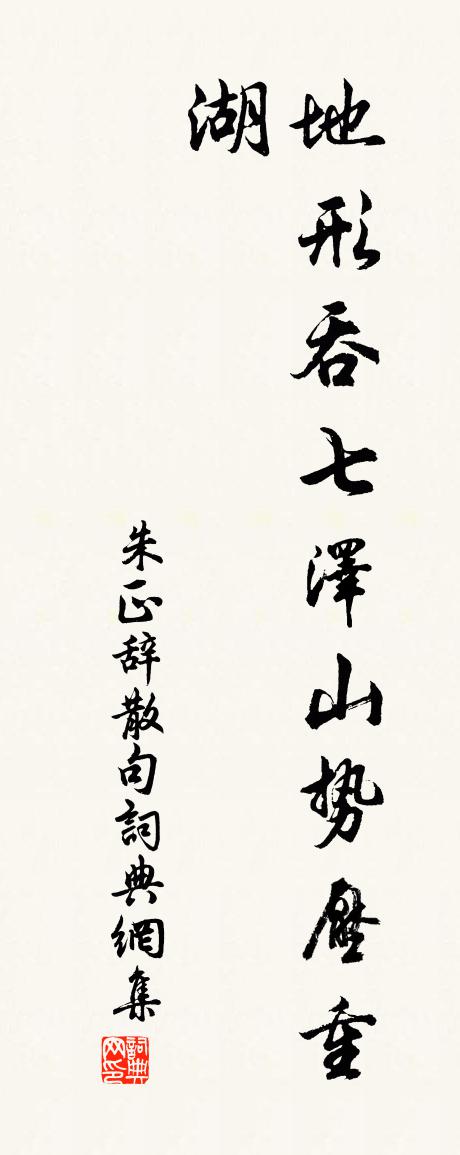 地形吞七澤山势壓重
湖
朱正辞散句詞典網集
詞典
网印